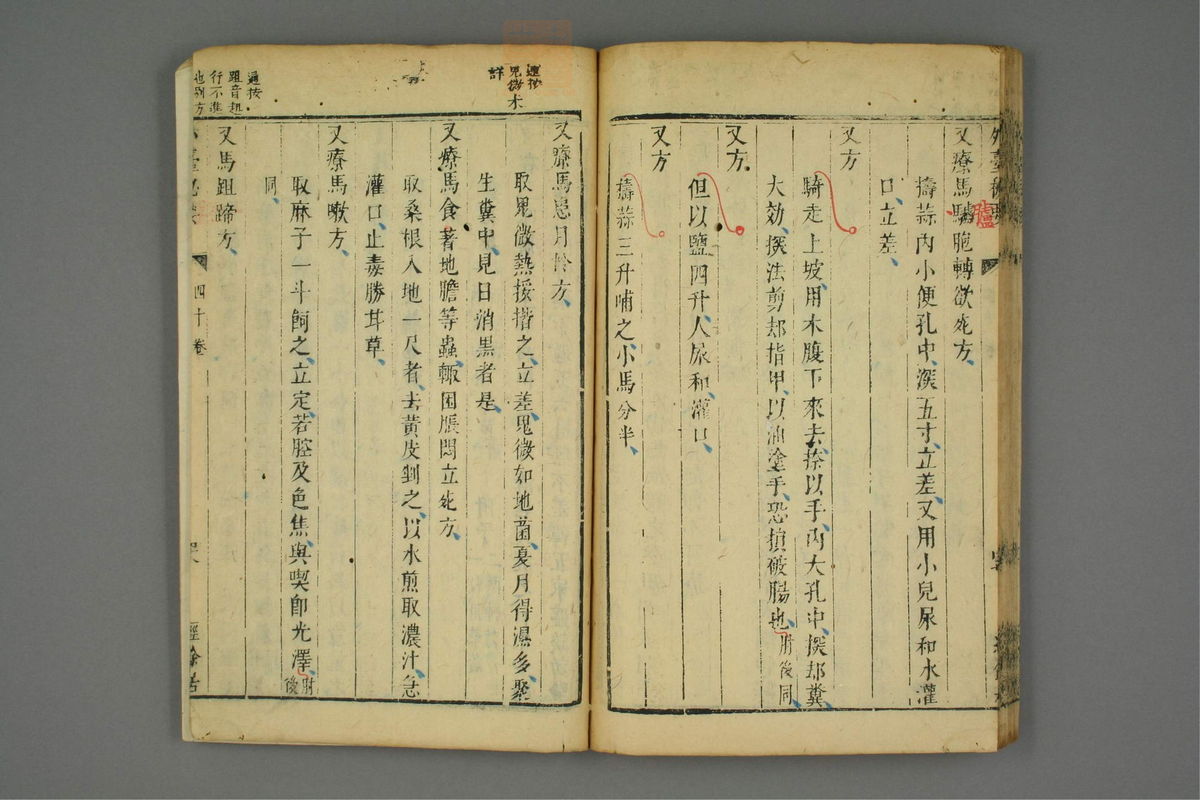 又療馬驢胞轉欲死方
臚
擣蒜內小便孔中深五寸立差又用小兒尿和水灌
口立差
又方
騎走上坡用木腹下來去捺以手內大孔中探却糞
大効探法剪却指甲以油塗手恐損破腸也肘後同
又方
但以鹽四升人尿和灌口
又方
擣蒜三升哺之小馬分半
鬼微未
詳
又療馬患方
取鬼微熱挼揩之立差鬼微如地菌夏月得濕多聚
生糞中見日消黑者是
又療馬食著地膽等蟲輒困脹悶立死方
取桑根入地一尺者去黃皮剉之以水煎取濃汁急
灌口止毒勝甘草
又療馬嗽方
取麻子一斗飼之立定若腔及色焦與喫即光澤肘後
同
又馬跙蹄方
跙音
行不進
四十卷
經餘居